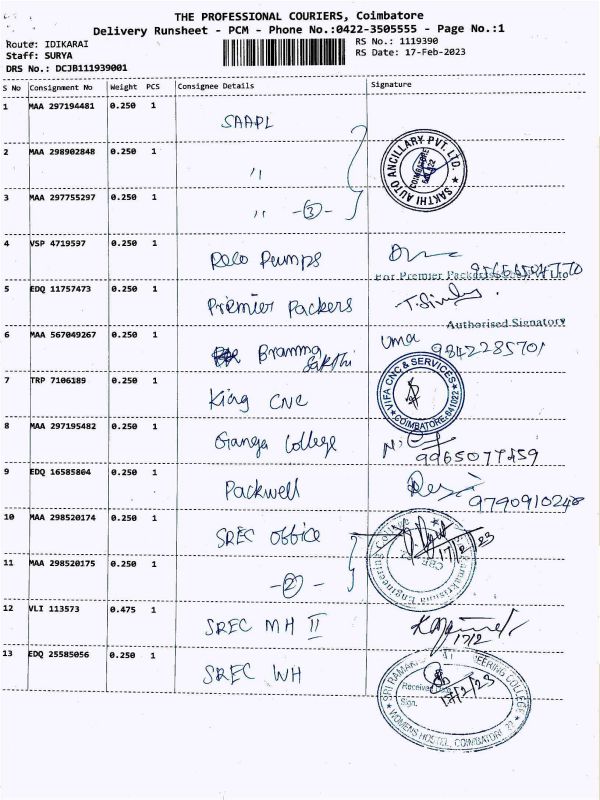 THE PROFESSIONAL COURIERS, Coimbatore
Delivery Runsheet - PCM - Phone No.:0422-3505555 - Page No.:1
Route: IDIKARAI
Staff: SURYA
DRS No.: DCJB111939001
RS No.: 1119390
RS Date: 17-Feb-2023
S No Consignment No Weight PCS Consignee Details Signature
1 MAA 297194481 0.250 1 SAAPL
2 MAA 298902848 0.250 1 "
3 MAA 297755297 0.250 1 " -3-
SAKTHI AUTO ANCILLARY PVT. LTD. COIMBATORE
4 VSP 4719597 0.250 1 Polo Pumps
For Premier Packers
5 EDQ 11757473 0.250 1 Premier Packers
Authorised Signatory
6 MAA 567049267 0.250 1 Bramma Sakthi Uma 9842285701
7 TRP 7106189 0.250 1 King CNC
VIFA CNC & SERVICES COIMBATORE-641022
8 MAA 297195482 0.250 1 Ganga College 9965077459
9 EDQ 16585804 0.250 1 Packwell 9790910248
10 MAA 298520174 0.250 1 SREC Office 17/2/23
11 MAA 298520175 0.250 1 -2-
12 VLI 113573 0.475 1 SREC MH II 17/2
13 EDQ 25585056 0.250 1 SREC WH
Received
17/2/23
Sign.
WOMENS HOSTEL, COIMBATORE 22